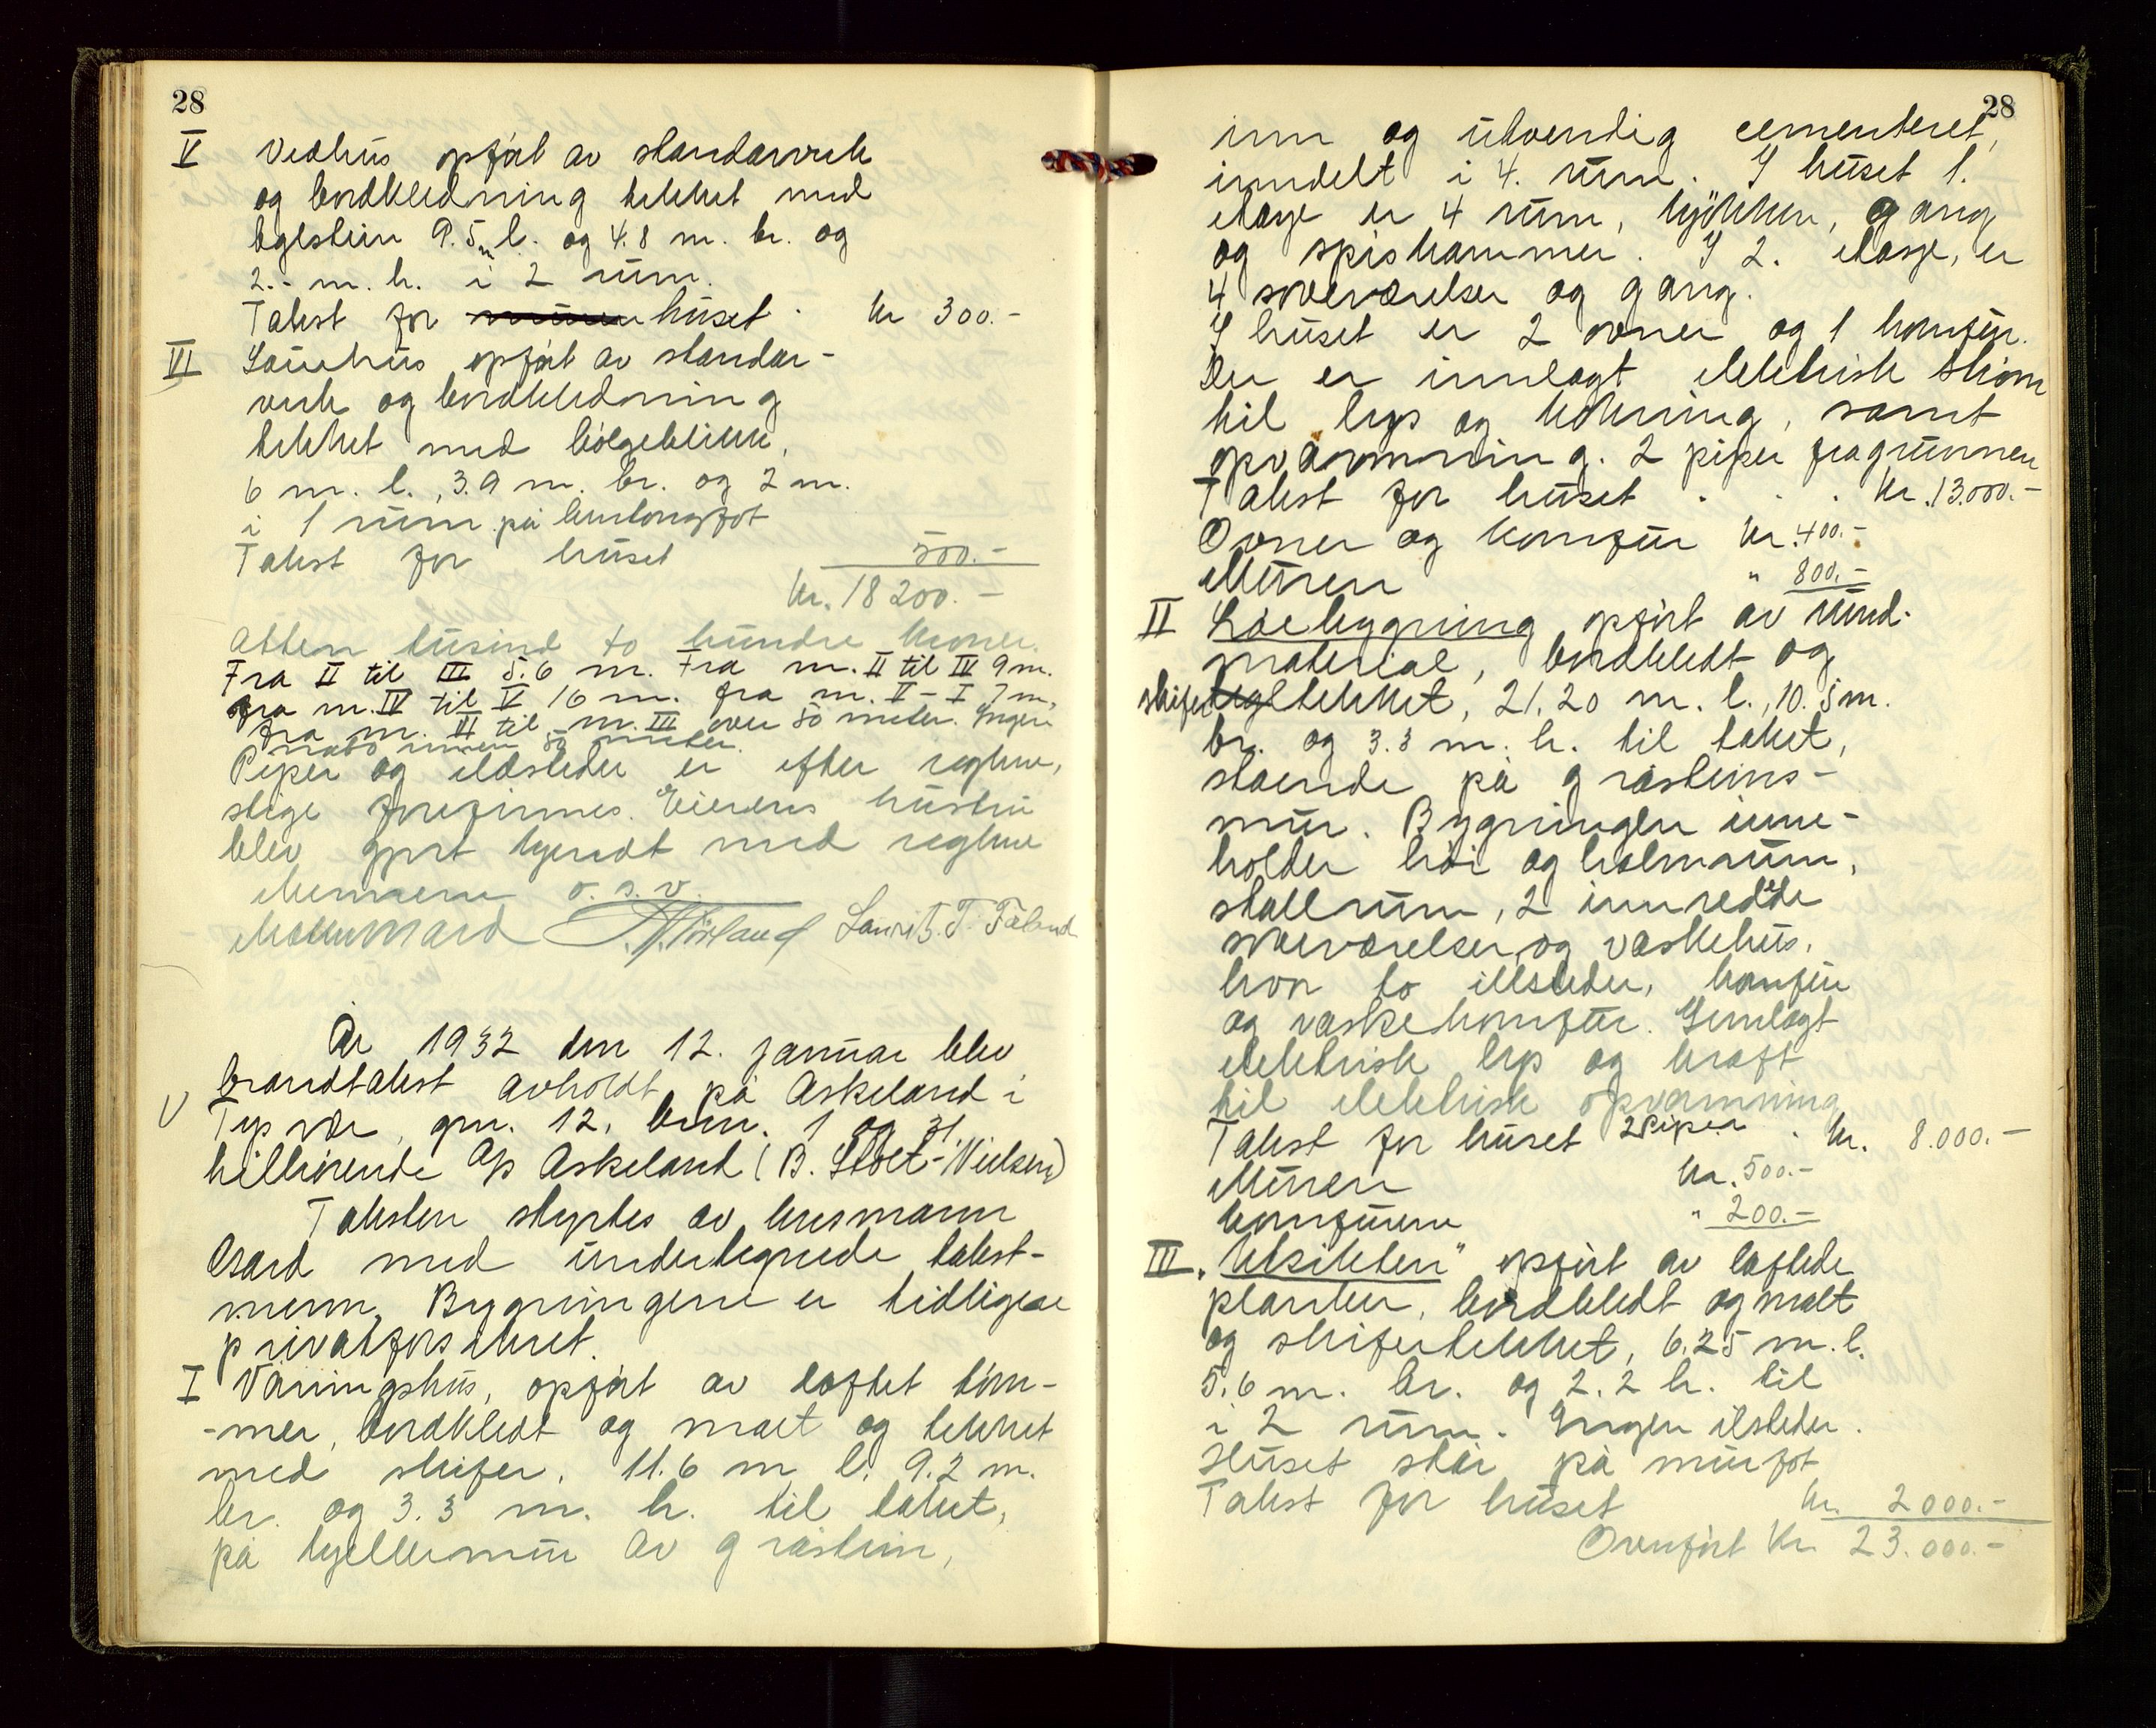 28
V Vedhus opført av standarverk
og bordkledning tekket med
teglstein 9.5 m l. og 4.8 m. br. og
2.- m. h. i 2 rum.
Takst for muren huset . kr 300.-
VI Sauehus opført av standar-
verk og bordkledning
tekket med bølgeblikk,
6 m. l., 3.9 m. br. og 2 m.
i 1 rum på betongfot
Takst for huset 500.-
kr. 18200.-
Atten tusind to hundre kroner.
Fra II til III 5.6 m. Fra nr. II til IV 9 m.
fra nr. IV til V 16 m. fra nr. V - I 7 m,
fra nr. III til nr. III over 50 meter. Ingen
nabo innen 50 meter.
Piper og ildsteder er efter reglene,
stige forefinnes. Eierens hustru
blev gjort kjendt med reglene
Mennene o. s. v.
Lauritz T. Føland
År 1932 den 12. januar blev
brandtakst avholdt på Askeland i
V Tysvær, gnr. 12, bnr. 1 og 31,
tilhørende A/s Askeland (B. Stolt-Nielsen)
Taksten styrtes av lensmann
Asard med undertegnede takst-
menn. Bygningene er tidligere
privatforsikret.
I Våningshus, opført av laftet tøm-
-mer, bordkledt og malt og tekket
med skifer. 11.6 m l. 9.2 m.
br. og 3.3 m. h. til taket,
på kjellermur av gråstein,
28
inn og utvendig cementeret,
inndelt i 4. rum. I huset 1.
etage er 4 rum, kjøkken, gang
og spiskammer. I 2. etasje, er
4 soveværelser og gang.
I huset er 2 ovner og 1 komfyr.
Der er innlagt elektrisk strøm
til lys og kokning, samt
opvarmning. 2 piper fra grunnen
Takst for huset . . . kr. 13.000.-
Ovner og komfur kr. 400.-
Muren " 800.-
II Løebygning opført av rund-
material, bordkledt og
skifer tegltekket, 21.20 m. l., 10.5 m.
br. og 3.3 m. h. til taket,
stående på gråsteins-
mur. Bygningen inne-
holder høi og halmrum,
stallrum, 2 innredde
soveværelser og vaskehus,
hvor to illsteder, komfur
og vaskekomfur. Innlagt
elektrisk lys og kraft
til elektrisk opvarmning
Takst for huset 2 Piper . kr. 8.000.-
Muren kr. 500.-
komfurene " 200.-
III „Utsikten" opført av laftede
planker, bordkledt og malt
og skifertekket, 6.25 m. l.
5.6 m. br. og 2.2 h. til
i 2 rum. Ingen ilsteder.
Huset står på murfot
Takst for huset kr. 2000.-
Overført kr. 23.000.-